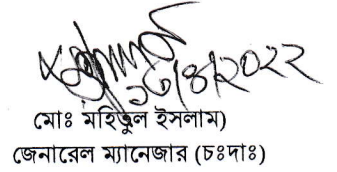 ১৩/৪/২০২২
মোঃ মহিতুল ইসলাম)
জেনারেল ম্যানেজার (চঃদাঃ)